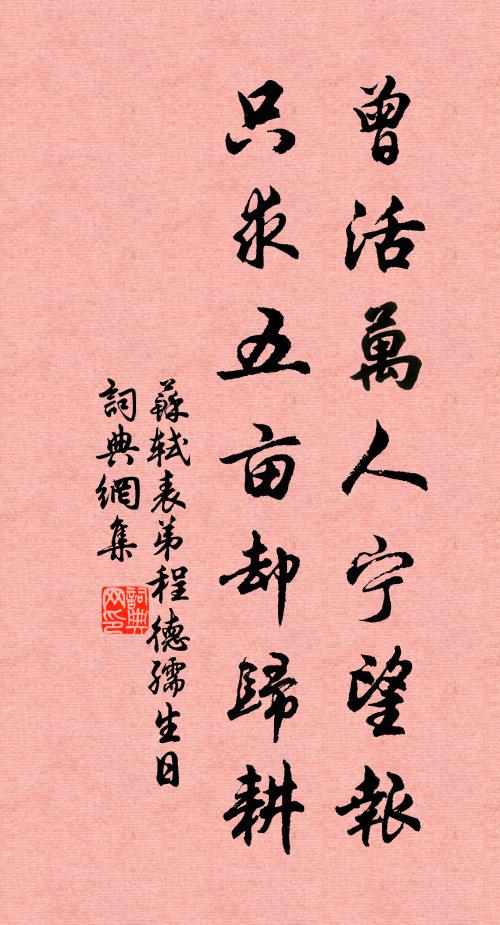 曾活萬人宁望報
只求五亩却歸耕
蘇轼表弟程德孺生日
詞典網集
詞典网印